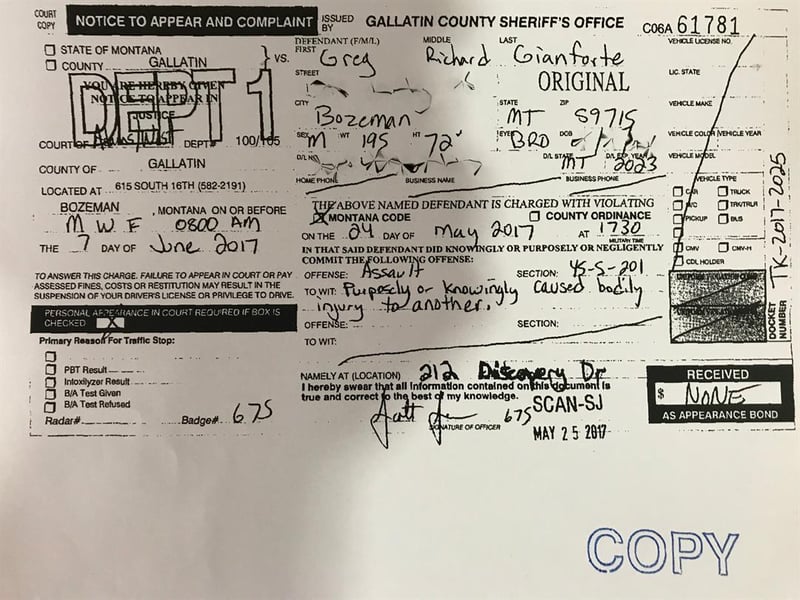 COURT COPY
NOTICE TO APPEAR AND COMPLAINT
ISSUED BY GALLATIN COUNTY SHERIFF'S OFFICE
C06A 61781
STATE OF MONTANA
COUNTY GALLATIN
} VS.
YOU ARE HEREBY GIVEN
NOTICE TO APPEAR IN
JUSTICE
DEPT 1
COURT OF DEPT# 100/105
COUNTY OF GALLATIN
LOCATED AT 615 SOUTH 16TH (582-2191)
BOZEMAN, MONTANA ON OR BEFORE
M W F 0800 AM
THE 7 DAY OF June 2017
TO ANSWER THIS CHARGE. FAILURE TO APPEAR IN COURT OR PAY
ASSESSED FINES, COSTS OR RESTITUTION MAY RESULT IN THE
SUSPENSION OF YOUR DRIVER'S LICENSE OR PRIVILEGE TO DRIVE.
PERSONAL APPEARANCE IN COURT REQUIRED IF BOX IS
CHECKED X
Primary Reason For Traffic Stop:
PBT Result
Intoxilyzer Result
B/A Test Given
B/A Test Refused
Radar# Badge# 675
DEFENDANT (F/M/L)
FIRST MIDDLE LAST
Greg Richard Gianforte
STREET
ORIGINAL
CITY STATE ZIP
Bozeman MT 59715
SEX M WT 195 HT 72" EYES BRO DOB
D/L NO. D/L ST. MT D/L EXP. YEAR 2023
HOME PHONE BUSINESS NAME BUSINESS PHONE
THE ABOVE NAMED DEFENDANT IS CHARGED WITH VIOLATING
X MONTANA CODE COUNTY ORDINANCE
ON THE 24 DAY OF May 2017 AT 1730
MILITARY TIME
IN THAT SAID DEFENDANT DID KNOWINGLY OR PURPOSELY OR NEGLIGENTLY
COMMIT THE FOLLOWING OFFENSE:
OFFENSE: Assault SECTION: 45-5-201
TO WIT: Purposly or Knowingly caused bodily
injury to another.
OFFENSE: SECTION:
TO WIT:
NAMELY AT (LOCATION) 212 Discovery Dr
I hereby swear that all information contained on this document is
true and correct to the best of my knowledge.
675
SIGNATURE OF OFFICER
SCAN-SJ
MAY 25 2017
VEHICLE LICENSE NO.
LIC. STATE
VEHICLE MAKE
VEHICLE COLOR VEHICLE YEAR
VEHICLE MODEL
VEHICLE TYPE
CAR TRUCK
M/C TRK/TRLR
PICKUP BUS
CMV CMV-H
CDL HOLDER
DOCKET NUMBER TK-2017-2025
RECEIVED
$ NONE
AS APPEARANCE BOND
COPY